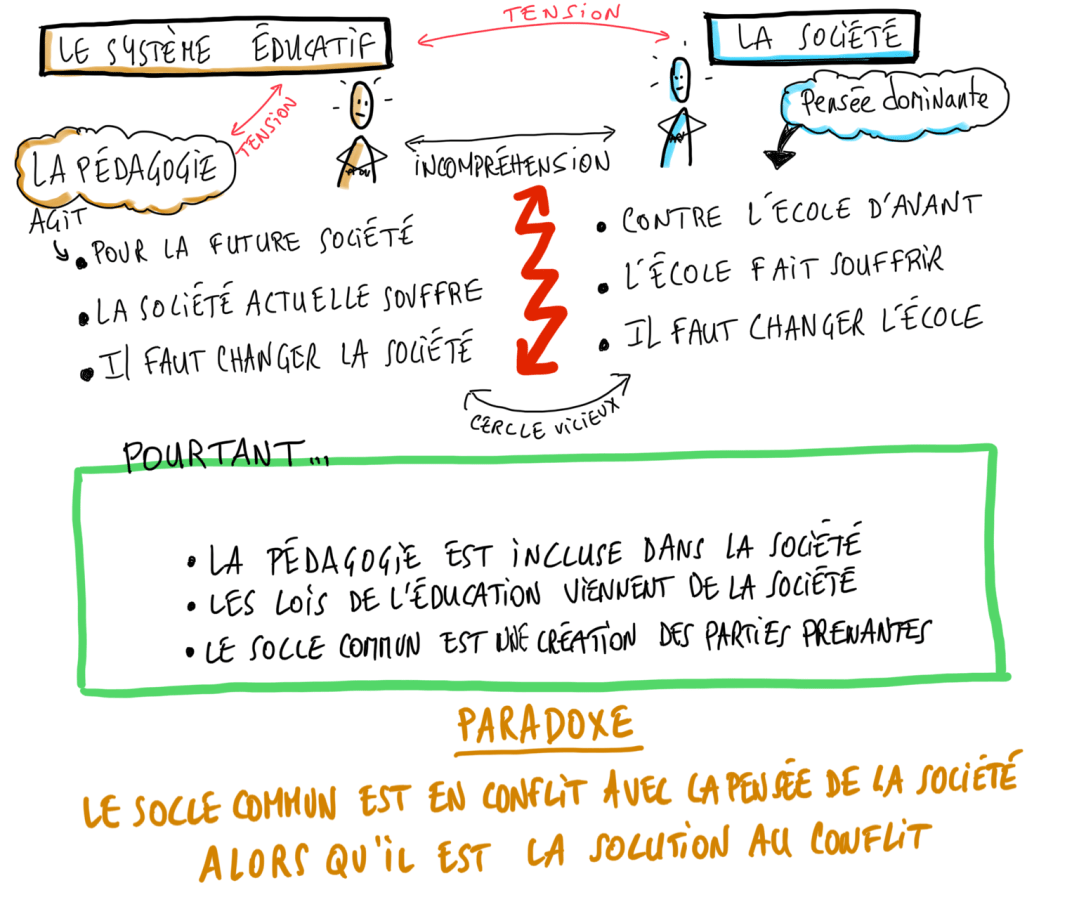 TENSION
LE SYSTÈME ÉDUCATIF
LA SOCIÉTÉ
Pensée dominante
TENSION
LA PÉDAGOGIE
INCOMPRÉHENSION
AGIT
• POUR LA FUTURE SOCIÉTÉ
• LA SOCIÉTÉ ACTUELLE SOUFFRE
• Il FAUT CHANGER LA SOCIÉTÉ
• CONTRE L'ÉCOLE D'AVANT
• L'ÉCOLE FAIT SOUFFRIR
• IL FAUT CHANGER L'ÉCOLE
CERCLE VICIEUX
POURTANT...
• LA PÉDAGOGIE EST INCLUSE DANS LA SOCIÉTÉ
• LES LOIS DE L'ÉDUCATION VIENNENT DE LA SOCIÉTÉ
• LE SOCLE COMMUN EST UNE CRÉATION DES PARTIES PRENANTES
PARADOXE
LE SOCLE COMMUN EST EN CONFLIT AVEC LA PENSÉE DE LA SOCIÉTÉ
ALORS QU'IL EST LA SOLUTION AU CONFLIT